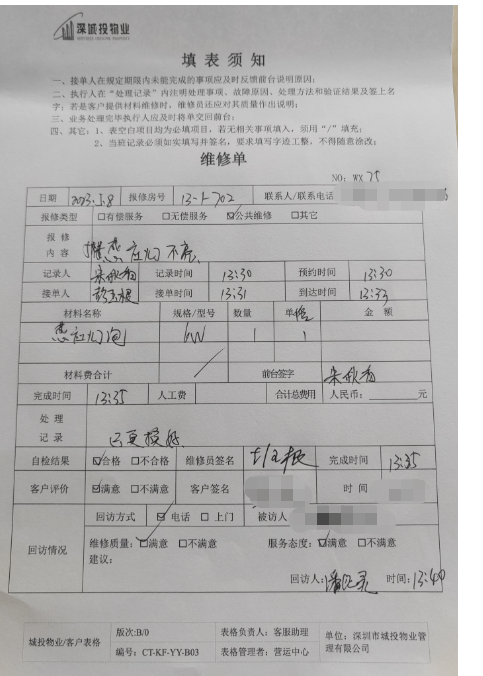 深城投物业
填表须知
一、接单人在规定期限内未能完成的事项应及时反馈前台说明原因;
二、执行人在“处理记录”内注明处理事项、故障原因、处理方法和验证结果及签上名
字;若是客户提供材料维修时,维修员还应对其质量作出说明;
三、业务处理完毕执行人应及时将单交回前台;
四、其它:1、表空白项目均为必填项目,若无相关事项填入,须用“/”填充;
2、当班记录必须如实填写并签名,要求填写字迹工整,不得随意涂改;
维修单
NO: WX 75
日期 2023.5.8 报修房号 13-1-702 联系人/联系电话
报修类型 □有偿服务 □无偿服务 ☑公共维修 □其它
报修内容 楼 应灯不亮
记录人 记录时间 13:30 预约时间 13:30
接单人 接单时间 13:31 到达时间 13:33
材料名称 规格/型号 数量 单价 金额
应灯泡 1 1
材料费合计 / 前台签字
完成时间 13:35 人工费 合计总费用 人民币: 元
处理记录 已更换好
自检结果 ☑合格 □不合格 维修员签名 完成时间 13:35
客户评价 ☑满意 □不满意 客户签名 时间
回访情况 回访方式 ☑电话 □上门 被访人
维修质量:☑满意 □不满意 服务态度:☑满意 □不满意
建议:
回访人: 时间:13:40
城投物业/客户表格 版次:B/0 表格负责人:客服助理 单位:深圳市城投物业管理有限公司
编号:CT-KF-YY-B03 表格管理者:营运中心